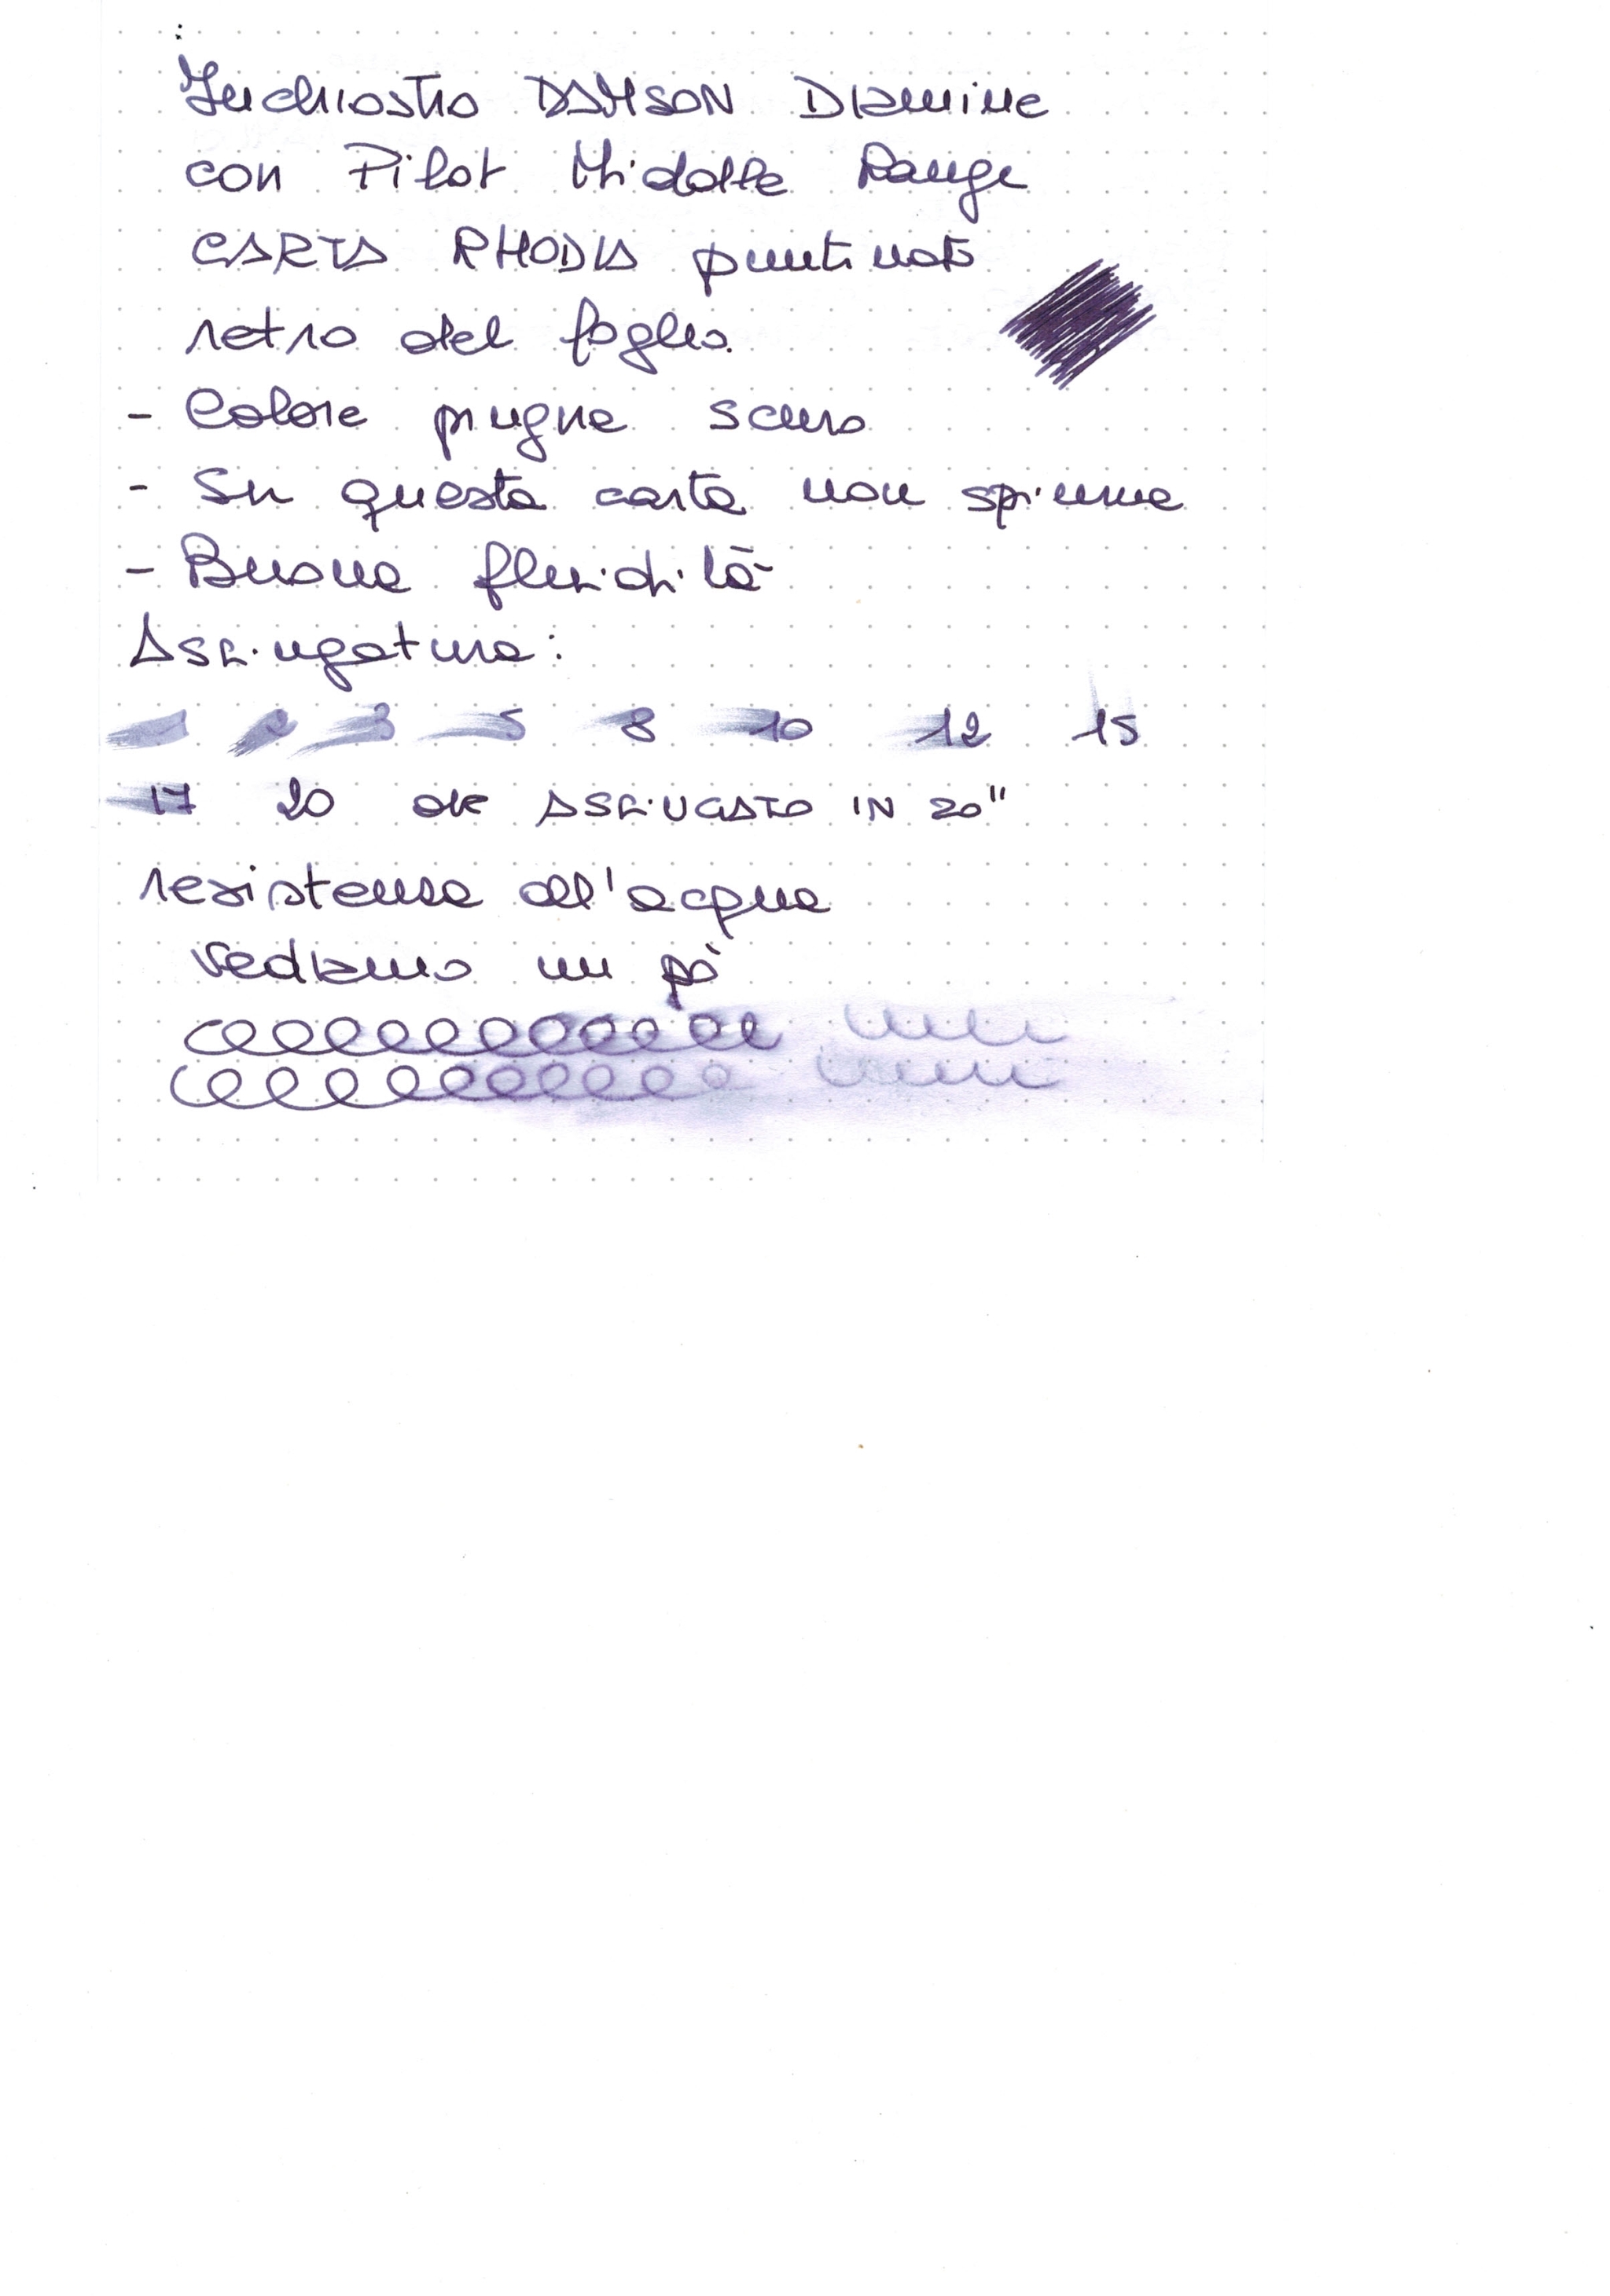 Inchiostro DAMSON Diamine
con Pilot Middle Range
CARTA RHODIA puntinata
retro del foglio.
- Colore prugna scuro
- Su questa carta non spiuma
- Buona fluidità
Asciugatura:
2 3 5 8 10 12 15
17 20 ok ASCIUGATO IN 20"
resistenza all'acqua
vediamo un pò